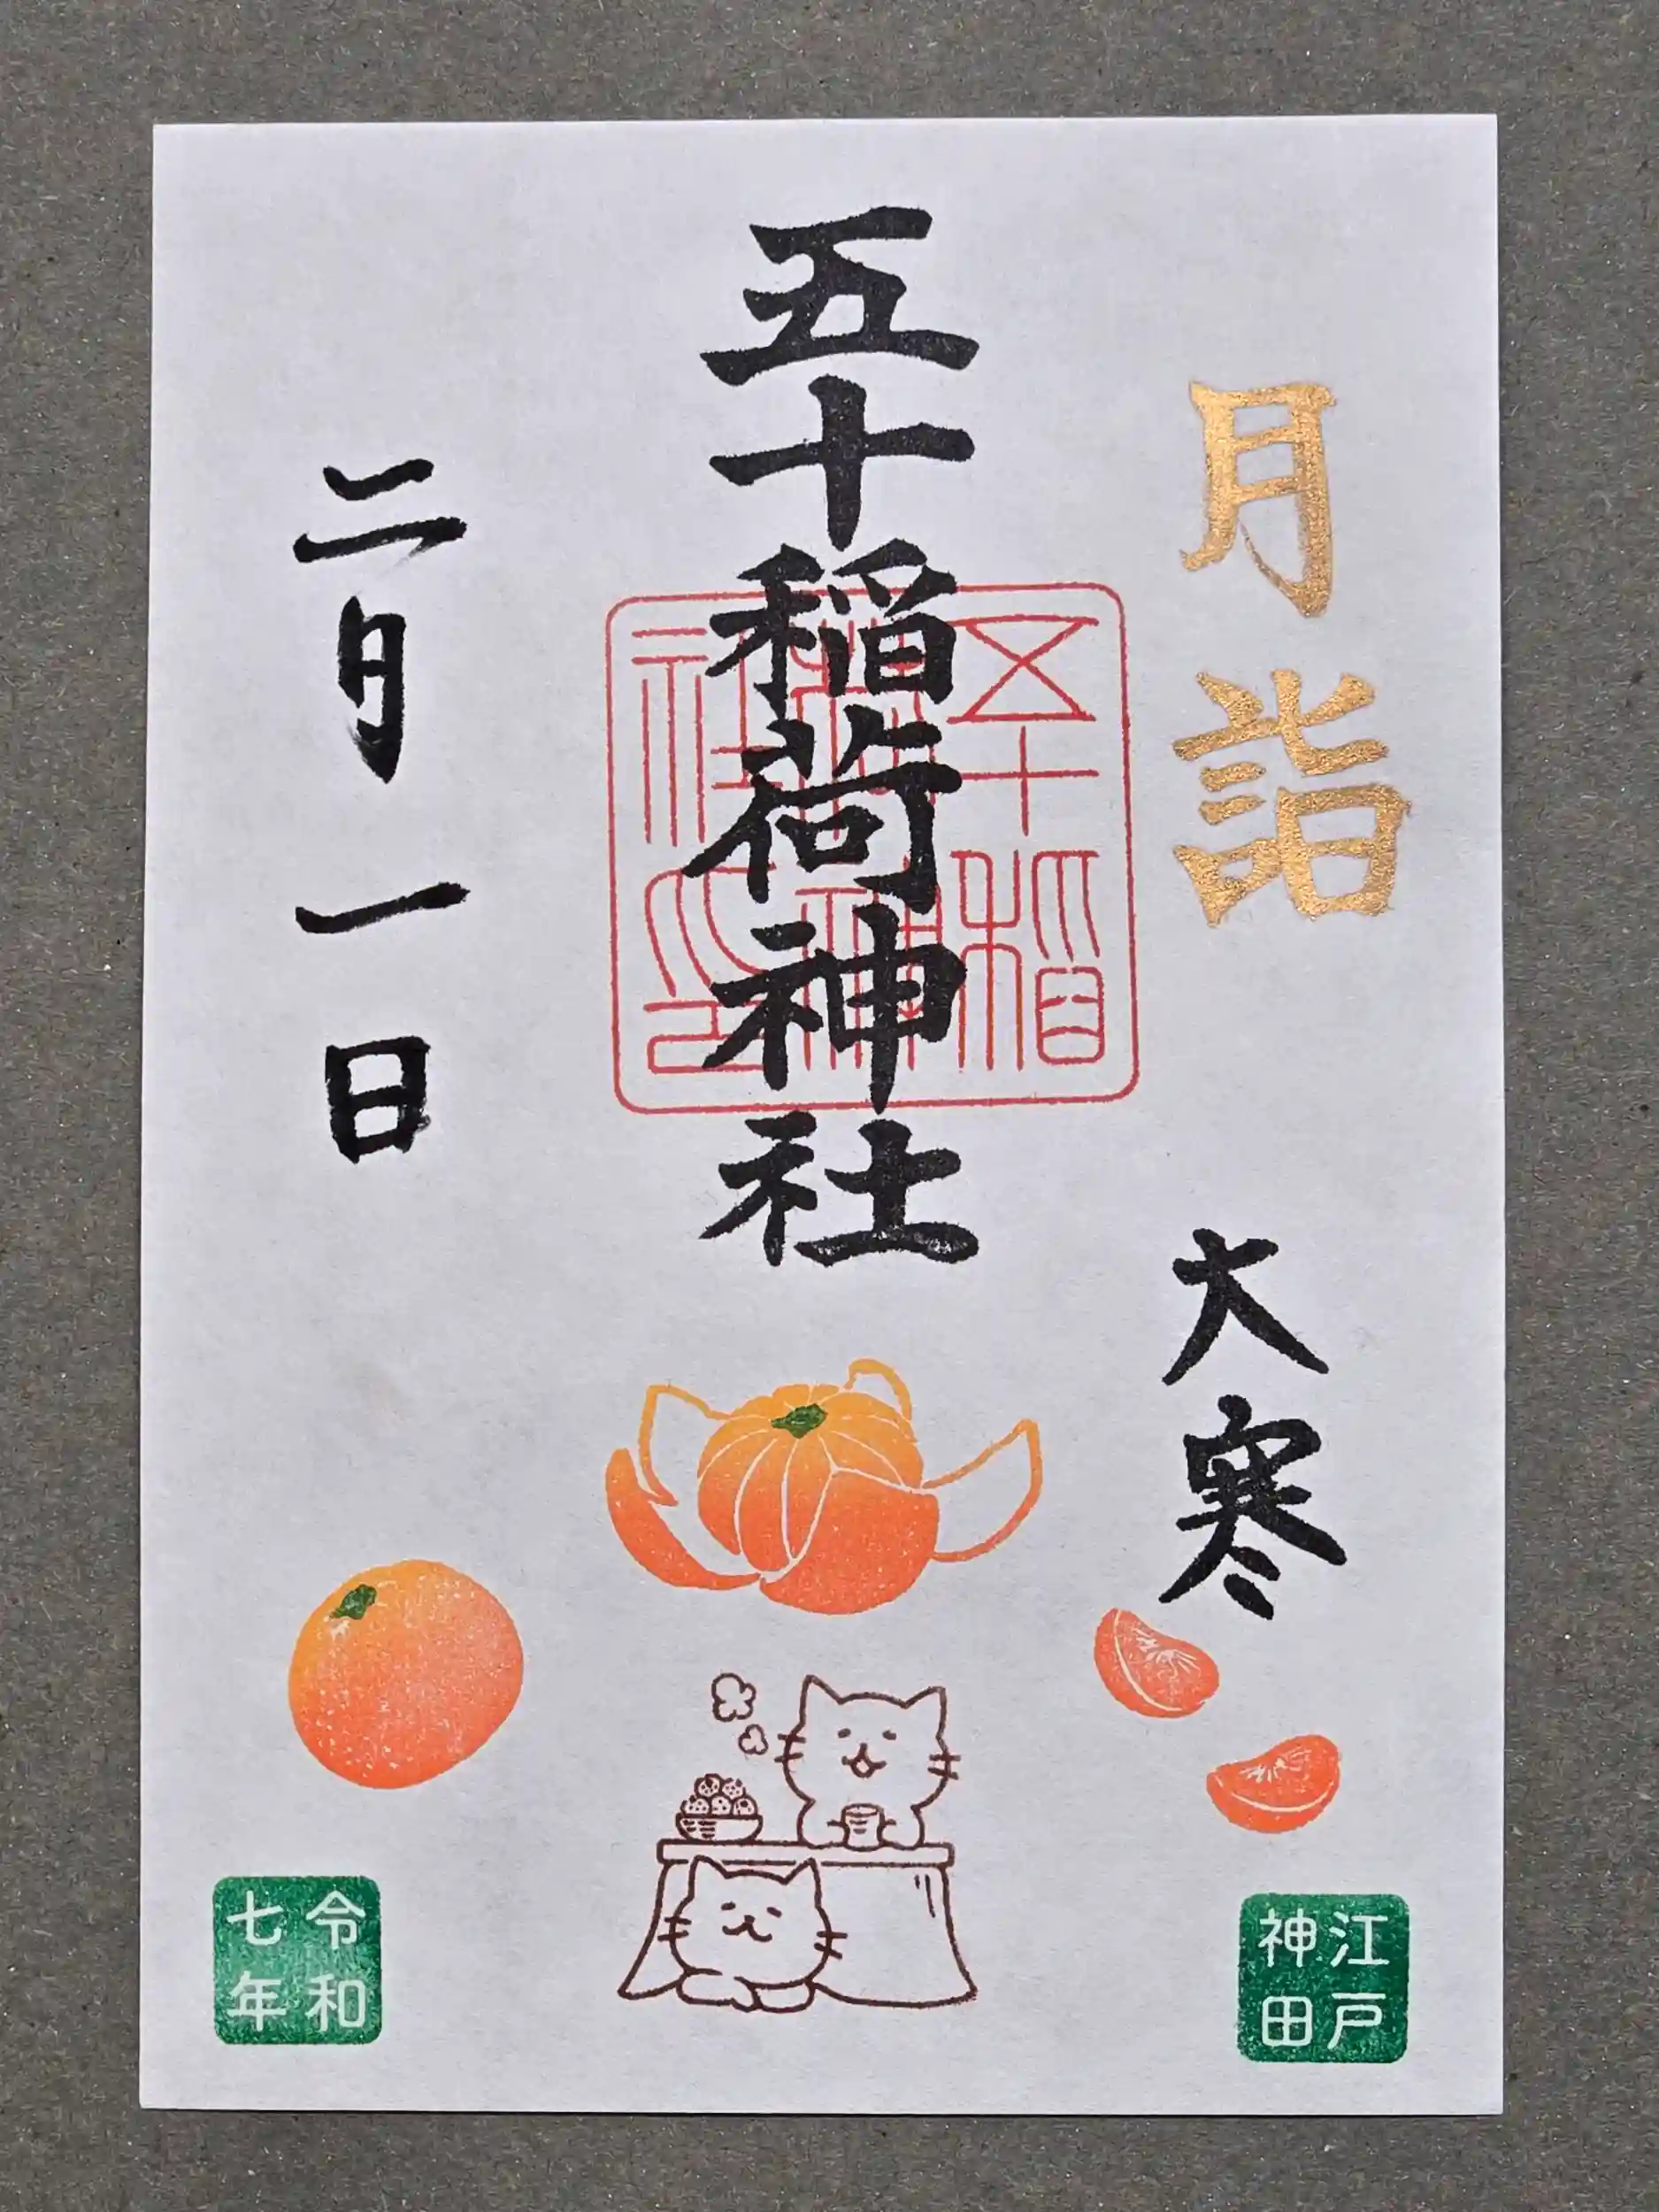 月詣
大寒
五十稲荷神社
五十稲
二月一日
江戸
神田
令和
七年